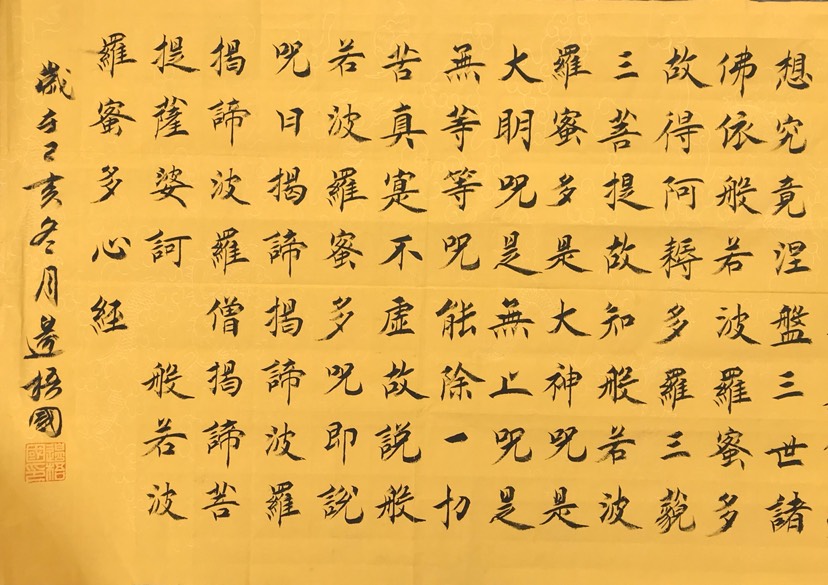 想究竟涅盤三世諸
佛依般若波羅蜜多
故得阿耨多羅三藐
三菩提故知般若波
羅蜜多是大神呪是
大明呪是無上呪是
無等等呪能除一切
苦真寔不虛故說般
若波羅蜜多呪即說
呪曰揭諦揭諦波羅
揭諦波羅僧揭諦菩
提薩婆訶 般若波
羅蜜多心経
歲在己亥冬月